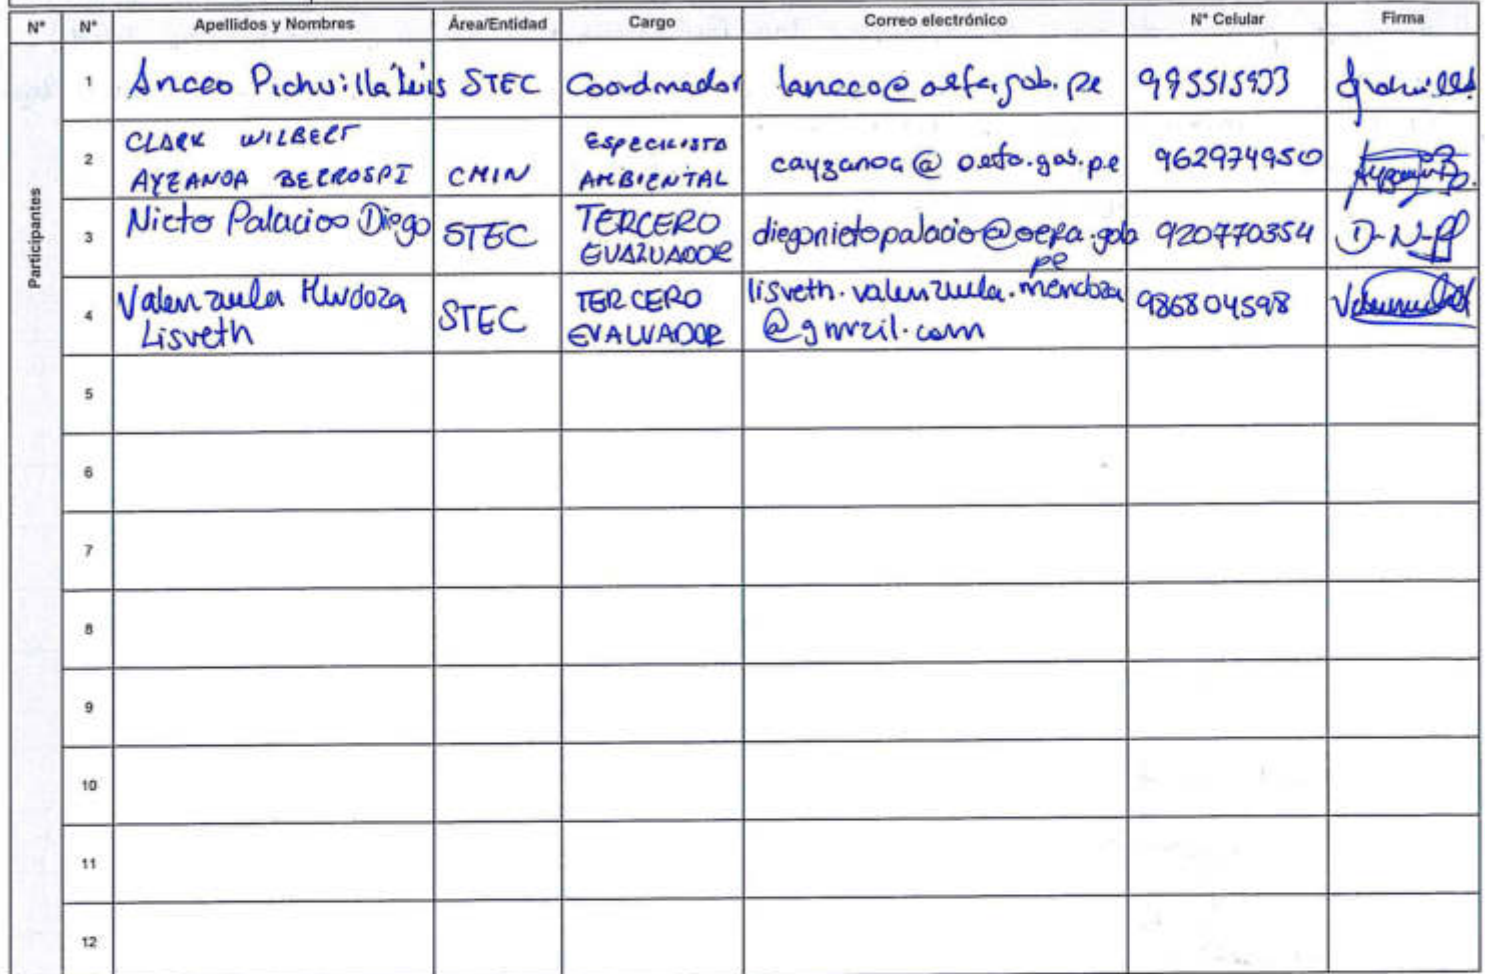 N° N° Apellidos y Nombres Área/Entidad Cargo Correo electrónico N° Celular Firma
Participantes
1 Ancco Pichuilla Luis STEC Coordinador lancco@oefa.gob.pe 995515933
2 CLARK WILBERT AYZANOA BERROSPI CMIN ESPECIALISTA AMBIENTAL cayzanoa@oefa.gob.pe 962974950
3 Nieto Palacios Diego STEC TERCERO EVALUADOR diegonietopalacio@oefa.gob pe 920770354 D-N-P
4 Valenzuela Mendoza Lisveth STEC TERCERO EVALUADOR lisveth.valenzuela.mendoza @gmail.com 986804598
5
6
7
8
9
10
11
12